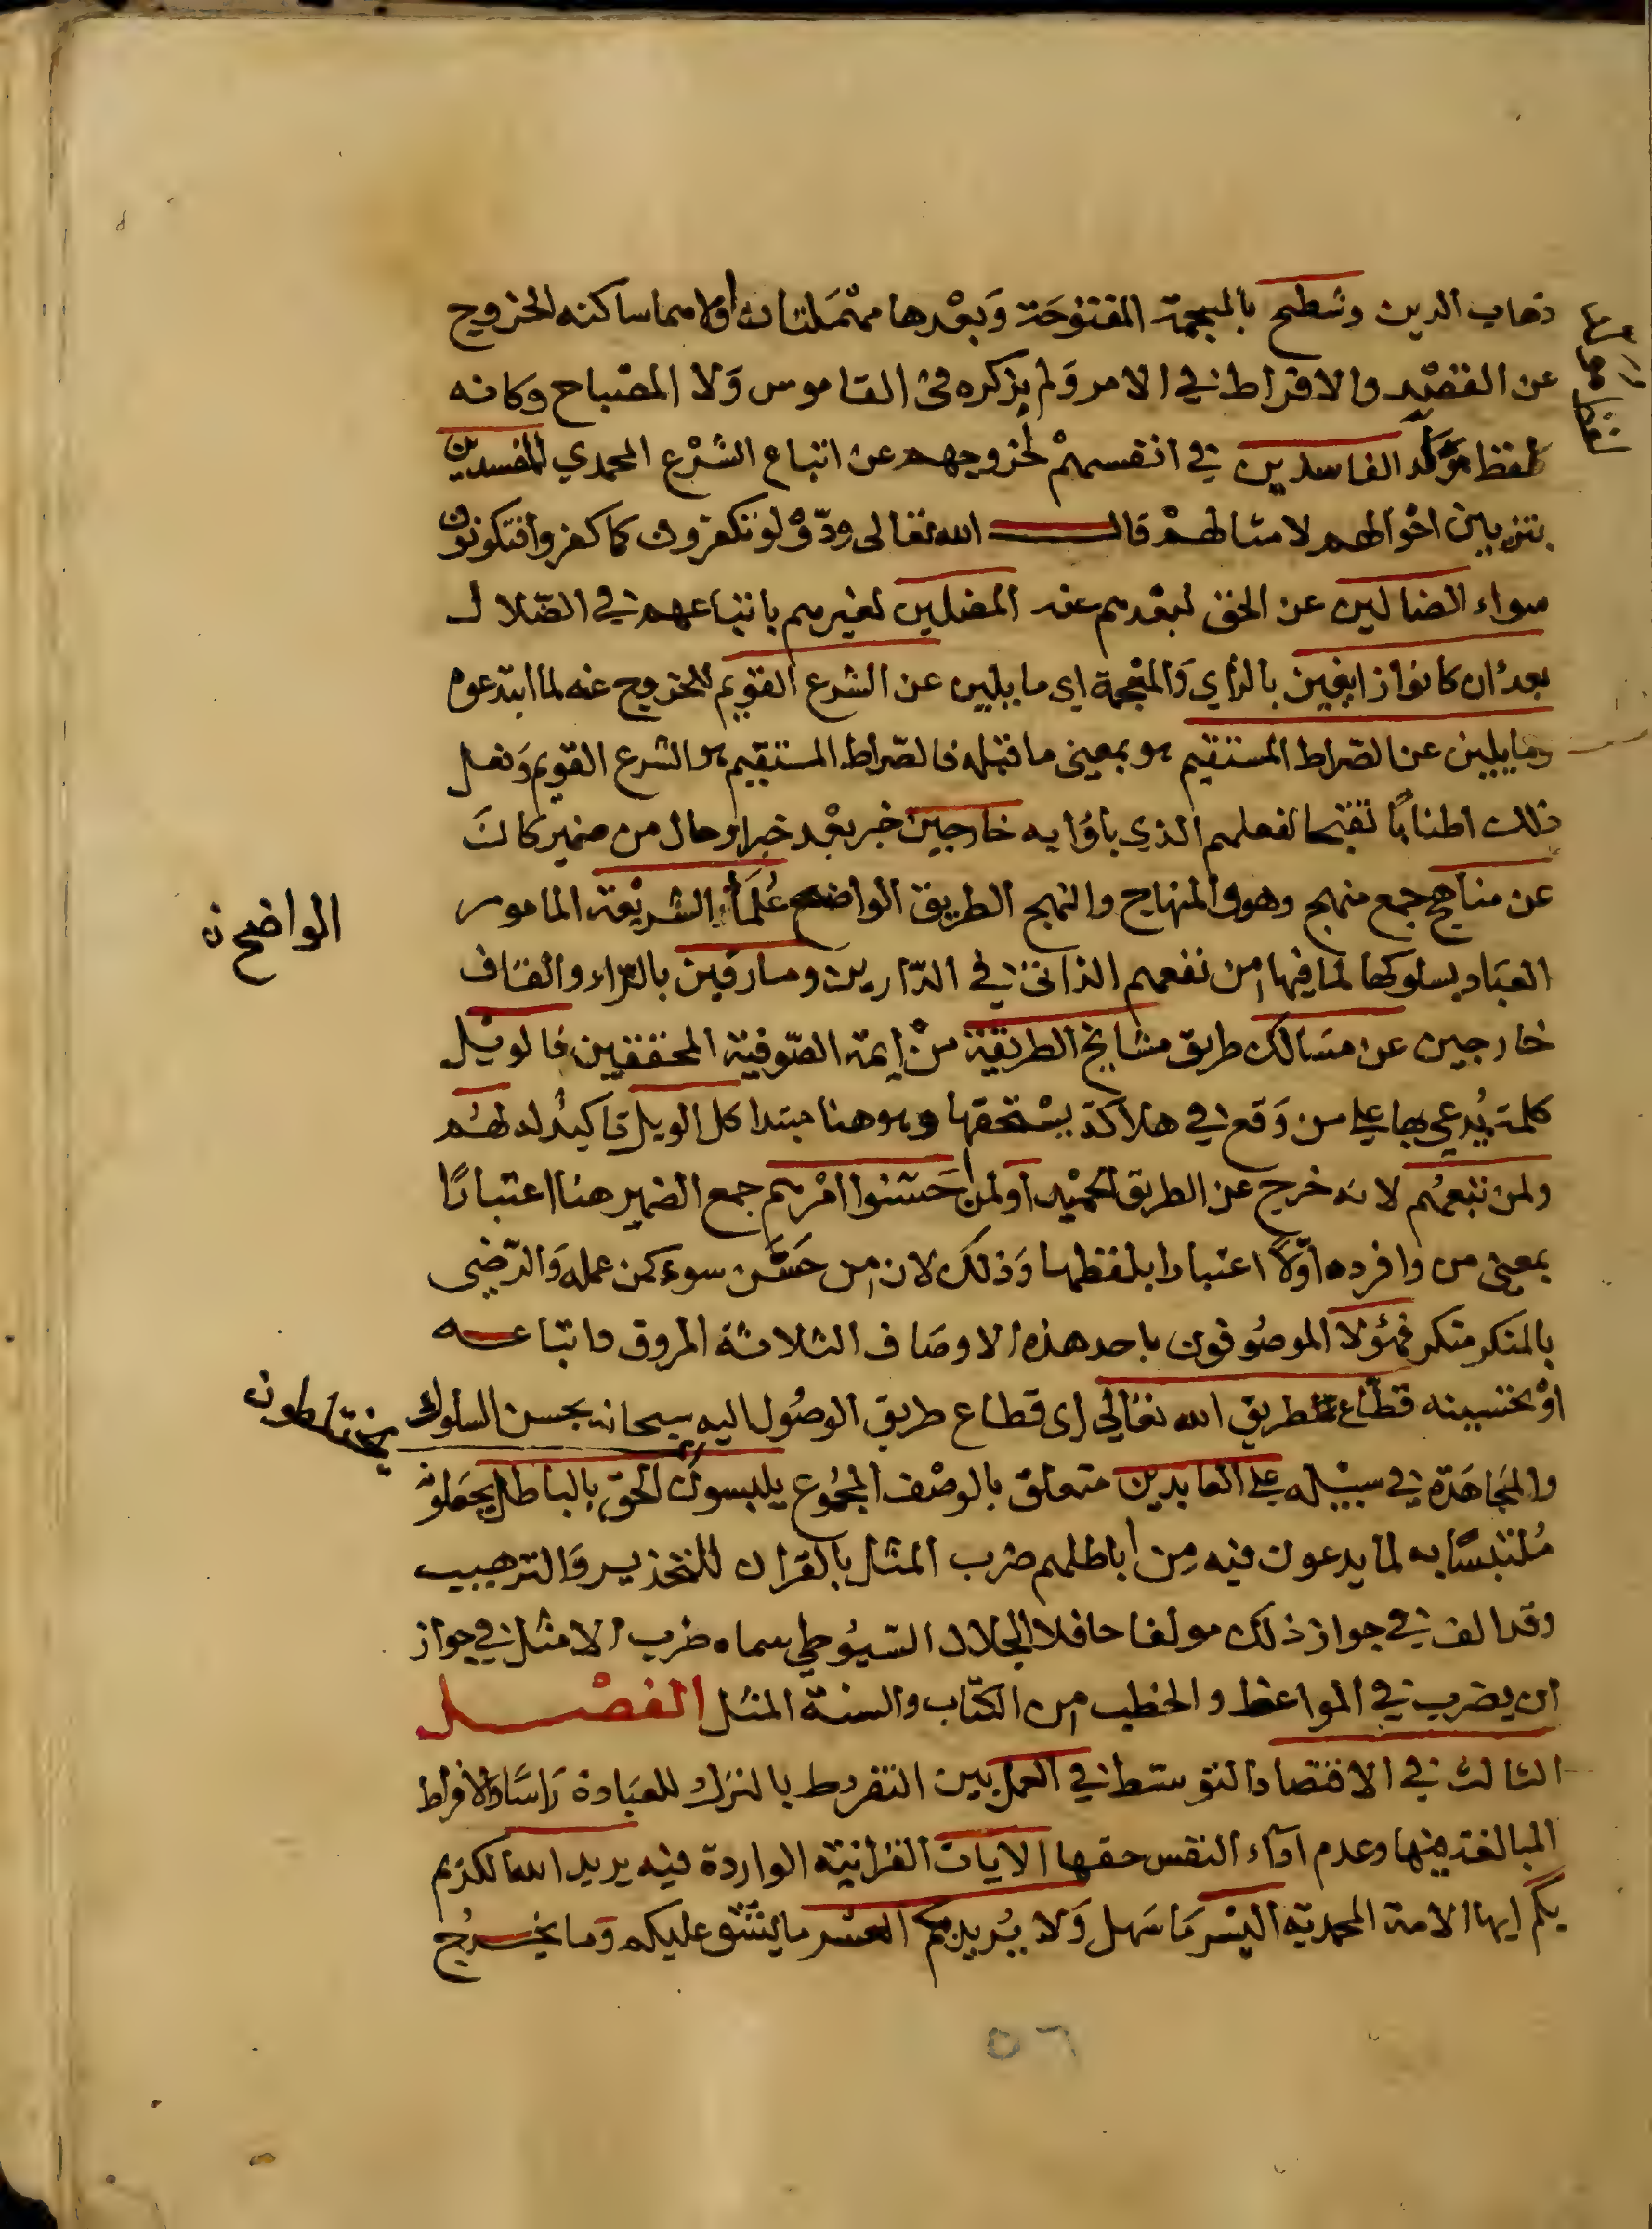 ذهاب الدين وشطح بالمعجمة المفتوحة وبعدها مهملتان اولاهما ساكنه الخروج
عن القصد والافراط في الامر ولم يذكره في القاموس ولا المصباح وكانه
لفظ مولد الفاسدين في انفسهم لخروجهم عن اتباع الشرع المحمدي المفسدين
بتزيين احوالهم لامثالهم قال الله تعالى ودّوْا لو تكفرون كما كفروا فتكونون
سواء الضالين عن الحق لبعدهم عنه المضلين لغيرهم باتباعهم في الضلال
بعد ان كانوا زايغين بالزاي والمعجمة اي مايلين عن الشرع القويم للخروج عنه لما ابتدعوه
ومايلين عن الصراط المستقيم هو بمعنى ما قبله فالصراط المستقيم هو الشرع القويم وفعل
ذلك اطنابًا تقبيحا لفعلهم الذي باؤا به خارجين خبر بعد خبر او حال من ضمير كان
عن مناهج جمع منهج وهو والمنهاج والنهج الطريق الواضح علماء الشريعة المامور
العباد بسلوكها لما فيها من نفعهم الذاتي في الدارين ومارقين بالراء والقاف
خارجين عن مسالك طريق مشايخ الطريقة من ايمة الصوفية المحققين فالويل
كلمة يُدعى بها على من وَقع في هلاكة يستحقها وهو هنا مبتدا كل الويل تاكيدُ له لهم
ولمن تبعهم لانه خرج عن الطريق الحميد او لمن حَسّنوا امرهم جمع الضمير هنا اعتبارًا
بمعنى من وافرده اوّلا اعتبارا بلفظها وذلك لان من حَسّن سوء كمن عمله والرضى
بالمنكر منكر فهؤلا الموصوفون باحد هذه الاوصاف الثلاثة المروق واتباعه
اوْ تحسينه قطّاع طريق الله تعالى اي قطاع طريق الوصُول اليه سبحانه بحسن السلوك
والمجاهدة في سبيله على العابدين متعلق بالوصف المجموع يلبسون الحق بالباطل يجعلونه
مُلتبسًا به لما يدعون فيه مِن اباطلهم ضرب المثل بالقران للتحذير والترهيب
وقد الف في جواز ذلك مولفا حافلا الجلال السّيُوطي سماه ضرب الامثل في جواز
ان يضرب في المواعظ والخطب من الكتاب والسنة المثل الفصل
الثالث في الاقتصاد التوسّط في العمل بين التفريط بالترك للعبادة رَاسًا والافراط
المبالغة فيها وعدم اداء النفس حقها الايات القرانية الواردة فيه يريد الله الكريم
بكم ايها الامة المحمدية اليسر مَا سَهل وَلا يُريد بكم العسر ما يشق عليكم وَما يخرج
الواضح ن
يختلطون
٥٦